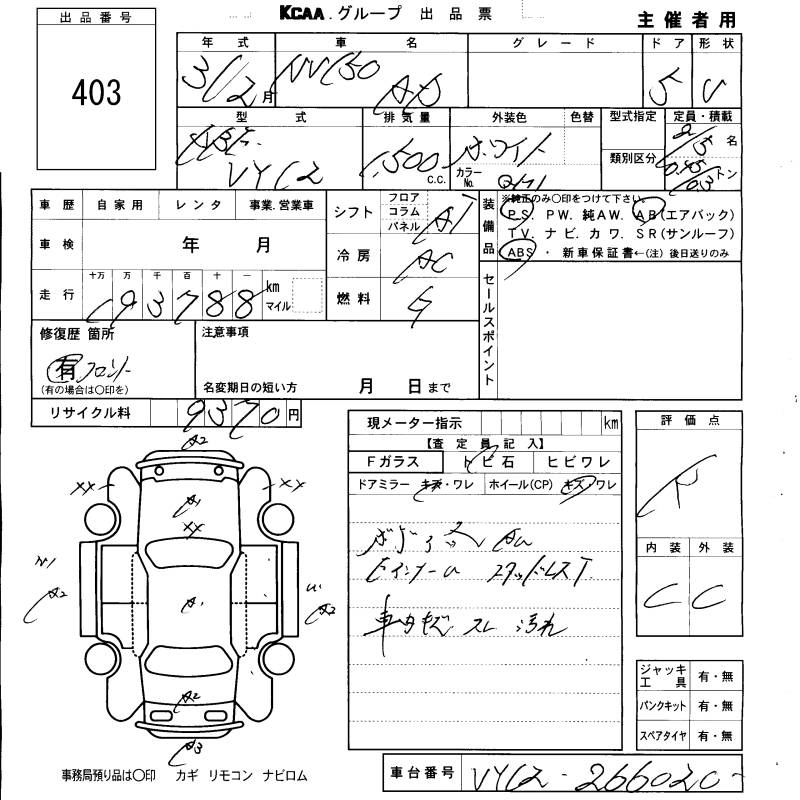 出品番号
403
KCAA.グループ 出品票
主催者用
年式 車名 グレード ドア 形状
3/2月 NV150 AD 5 V
型式 排気量 外装色 色替 型式指定 定員・積載
VY12 1,500 C.C. ホワイト カラーNo. QM1 類別区分 2/5名 トン
車歴 自家用 レンタ 事業.営業車
シフト フロア コラム パネル AT
装備品 ※純正のみ○印をつけて下さい。
PS. PW. 純AW. AB(エアバック)
TV. ナビ. カワ. SR(サンルーフ)
ABS ・ 新車保証書←(注) 後日送りのみ
車検 年 月
冷房 AC
十万 万 千 百 十 一
走行 193788 km マイル
燃料 G
セールスポイント
修復歴 箇所 注意事項
有 フロント
(有の場合は○印を) 名変期日の短い方 月 日まで
リサイクル料 9370円
現メーター指示 km
評価点
【査定員記入】
Fガラス トビ石 ヒビワレ
ドアミラー キズ・ワレ ホイール(CP) キズ・ワレ
R
内装 外装
C C
スタッドレスT
車内キズ スレ 汚れ
A2
XX XX
A1
XX
A2 A1 A2
A2
A3
ジャッキ工具 有・無
パンクキット 有・無
スペアタイヤ 有・無
事務局預り品は○印 カギ リモコン ナビロム
車台番号 VY12-266020